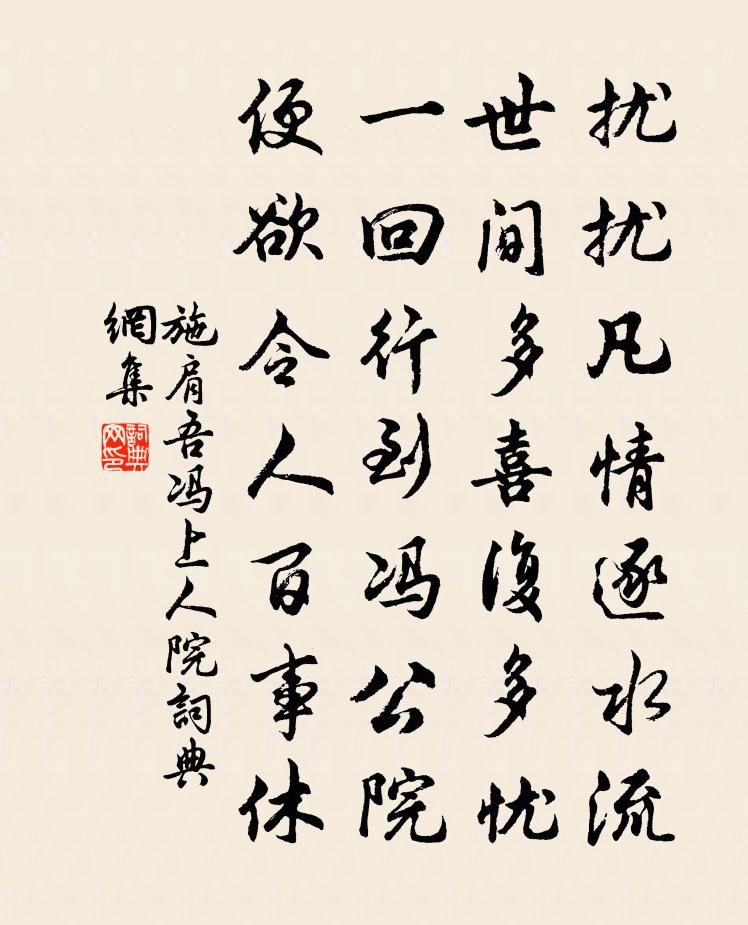 扰扰凡情逐水流
世间多喜復多忧
一回行到冯公院
便欲令人百事休
施肩吾冯上人院詞典
網集
詞典
网印